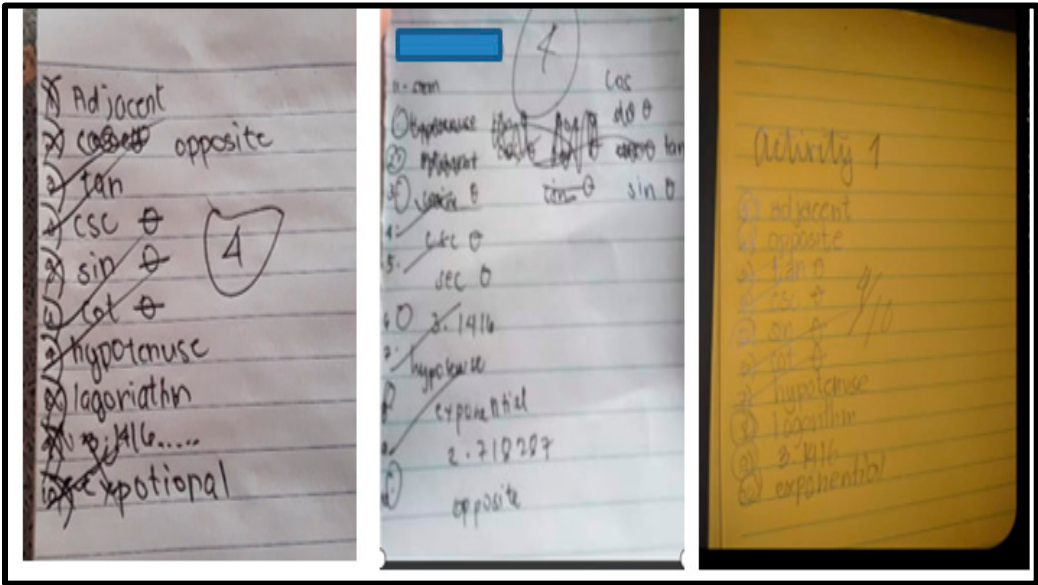 1) Adjacent
2) opposite
3) tan
4) csc θ
5) sin θ
6) cot θ
7) hypotenuse
8) lagoriathn
9) 3.1416.....
10) expotional
4
4
11 - stem
cos
1) Hypotenuse
2)
3) θ
tan
tan θ
sin θ
4. csc θ
5. sec θ
6 3.1416
7. hypotenuse
exponential
2.718287
opposite
Activity 1
1) adjacent
2) opposite
3) tan θ
4) csc θ
5) sin θ
6) cot θ
7) hypotenuse
8) logarithm
9) 3.1416
10) exponential
4/10